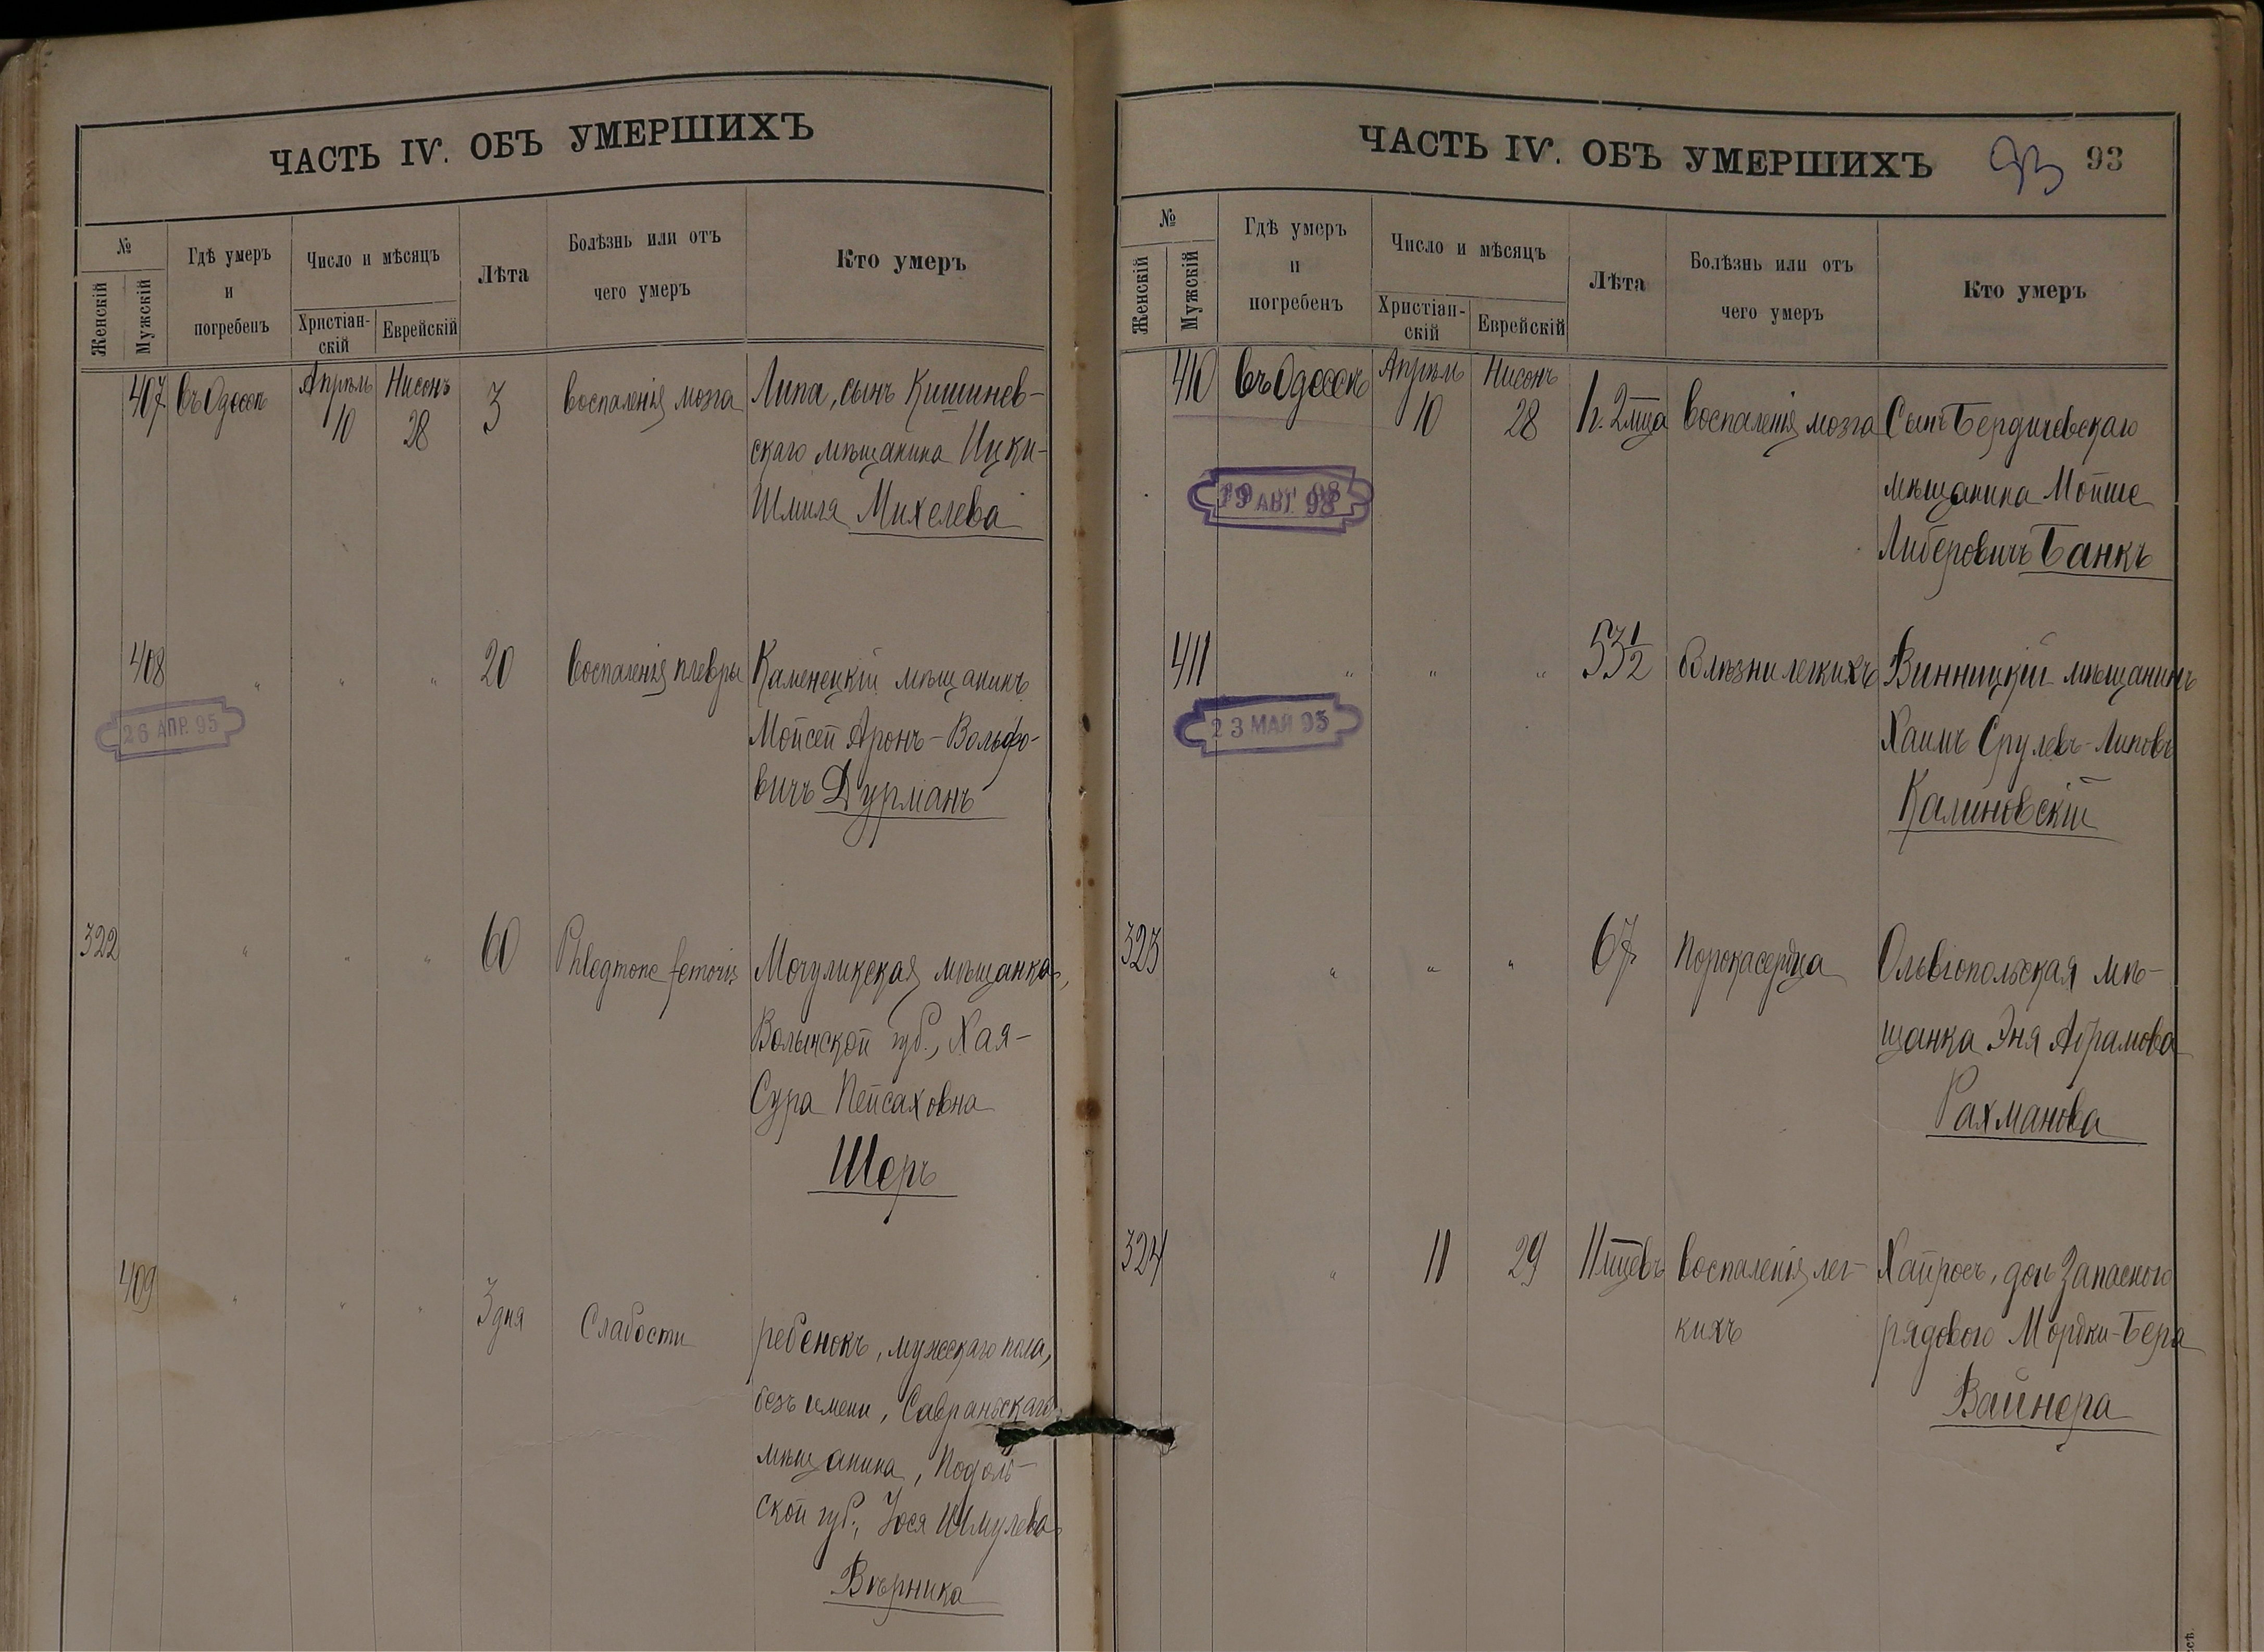 ЧАСТЬ IV. ОБЪ УМЕРШИХЪ
№
Женскій
Мужскій
Гдѣ умеръ
и
погребенъ
Число и мѣсяцъ
Христіан-
скій
Еврейскій
Лѣта
Болѣзнь или отъ
чего умеръ
Кто умеръ
407 въ Одессѣ Апрѣль 10 Нисонъ 28 3 воспаленія мозга Липа, сынъ Кишинев-
скаго мѣщанина Ицки-
Шмиля Михелева
408 " " " 20 воспаленія плевры Каменецкій мѣщанинъ
26 АПР. 95
Мойсей Аронъ-Вольфо-
вичъ Дурманъ
322 " " " 60 Phlegmone femoris Мочулкская мѣщанка,
Волынской губ., Хая-
Сура Пейсаховна
Шеръ
409 " " " 3 дня Слабости ребенокъ, мужескаго пола,
безъ имени, Савраньскаго
мѣщанина, Подоль-
ской губ., Іося Шмулева
Вѣрника
ЧАСТЬ IV. ОБЪ УМЕРШИХЪ 93 93
№
Женскій
Мужскій
Гдѣ умеръ
и
погребенъ
Число и мѣсяцъ
Христіан-
скій
Еврейскій
Лѣта
Болѣзнь или отъ
чего умеръ
Кто умеръ
410 въ Одессѣ Апрѣль 10 Нисонъ 28 1 г. 2 мца воспаленія мозга Сынъ Бердичевскаго
19 АВГ 98
мѣщанина Мойше
Либеровичъ Банкъ
411 " " " 53 1/2 Болѣзни легкихъ Винницкій мѣщанинъ
23 МАЙ 95
Хаимъ Срулевъ-Липовъ
Калиновскій
323 " " " 67 Порока сердца Ольвіопольская мѣ-
щанка Эня Абрамова
Рахманова
324 " 11 29 11 мцевъ воспаленія лег- Хайросъ, дочь Запаснаго
кихъ рядового Мордки-Бера
Вайнера